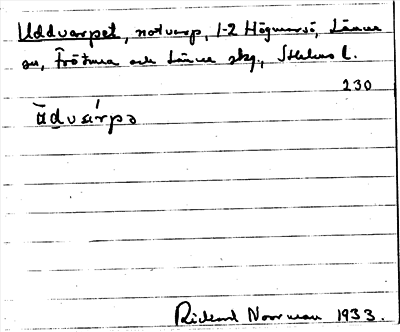 Uddvarpet, notvarp, 1-2 Högmarsö, Länna
sn, Frötuna och Länna skg., Sthlms l.
230
ùdvárpə
Rickard Norrman 1933.